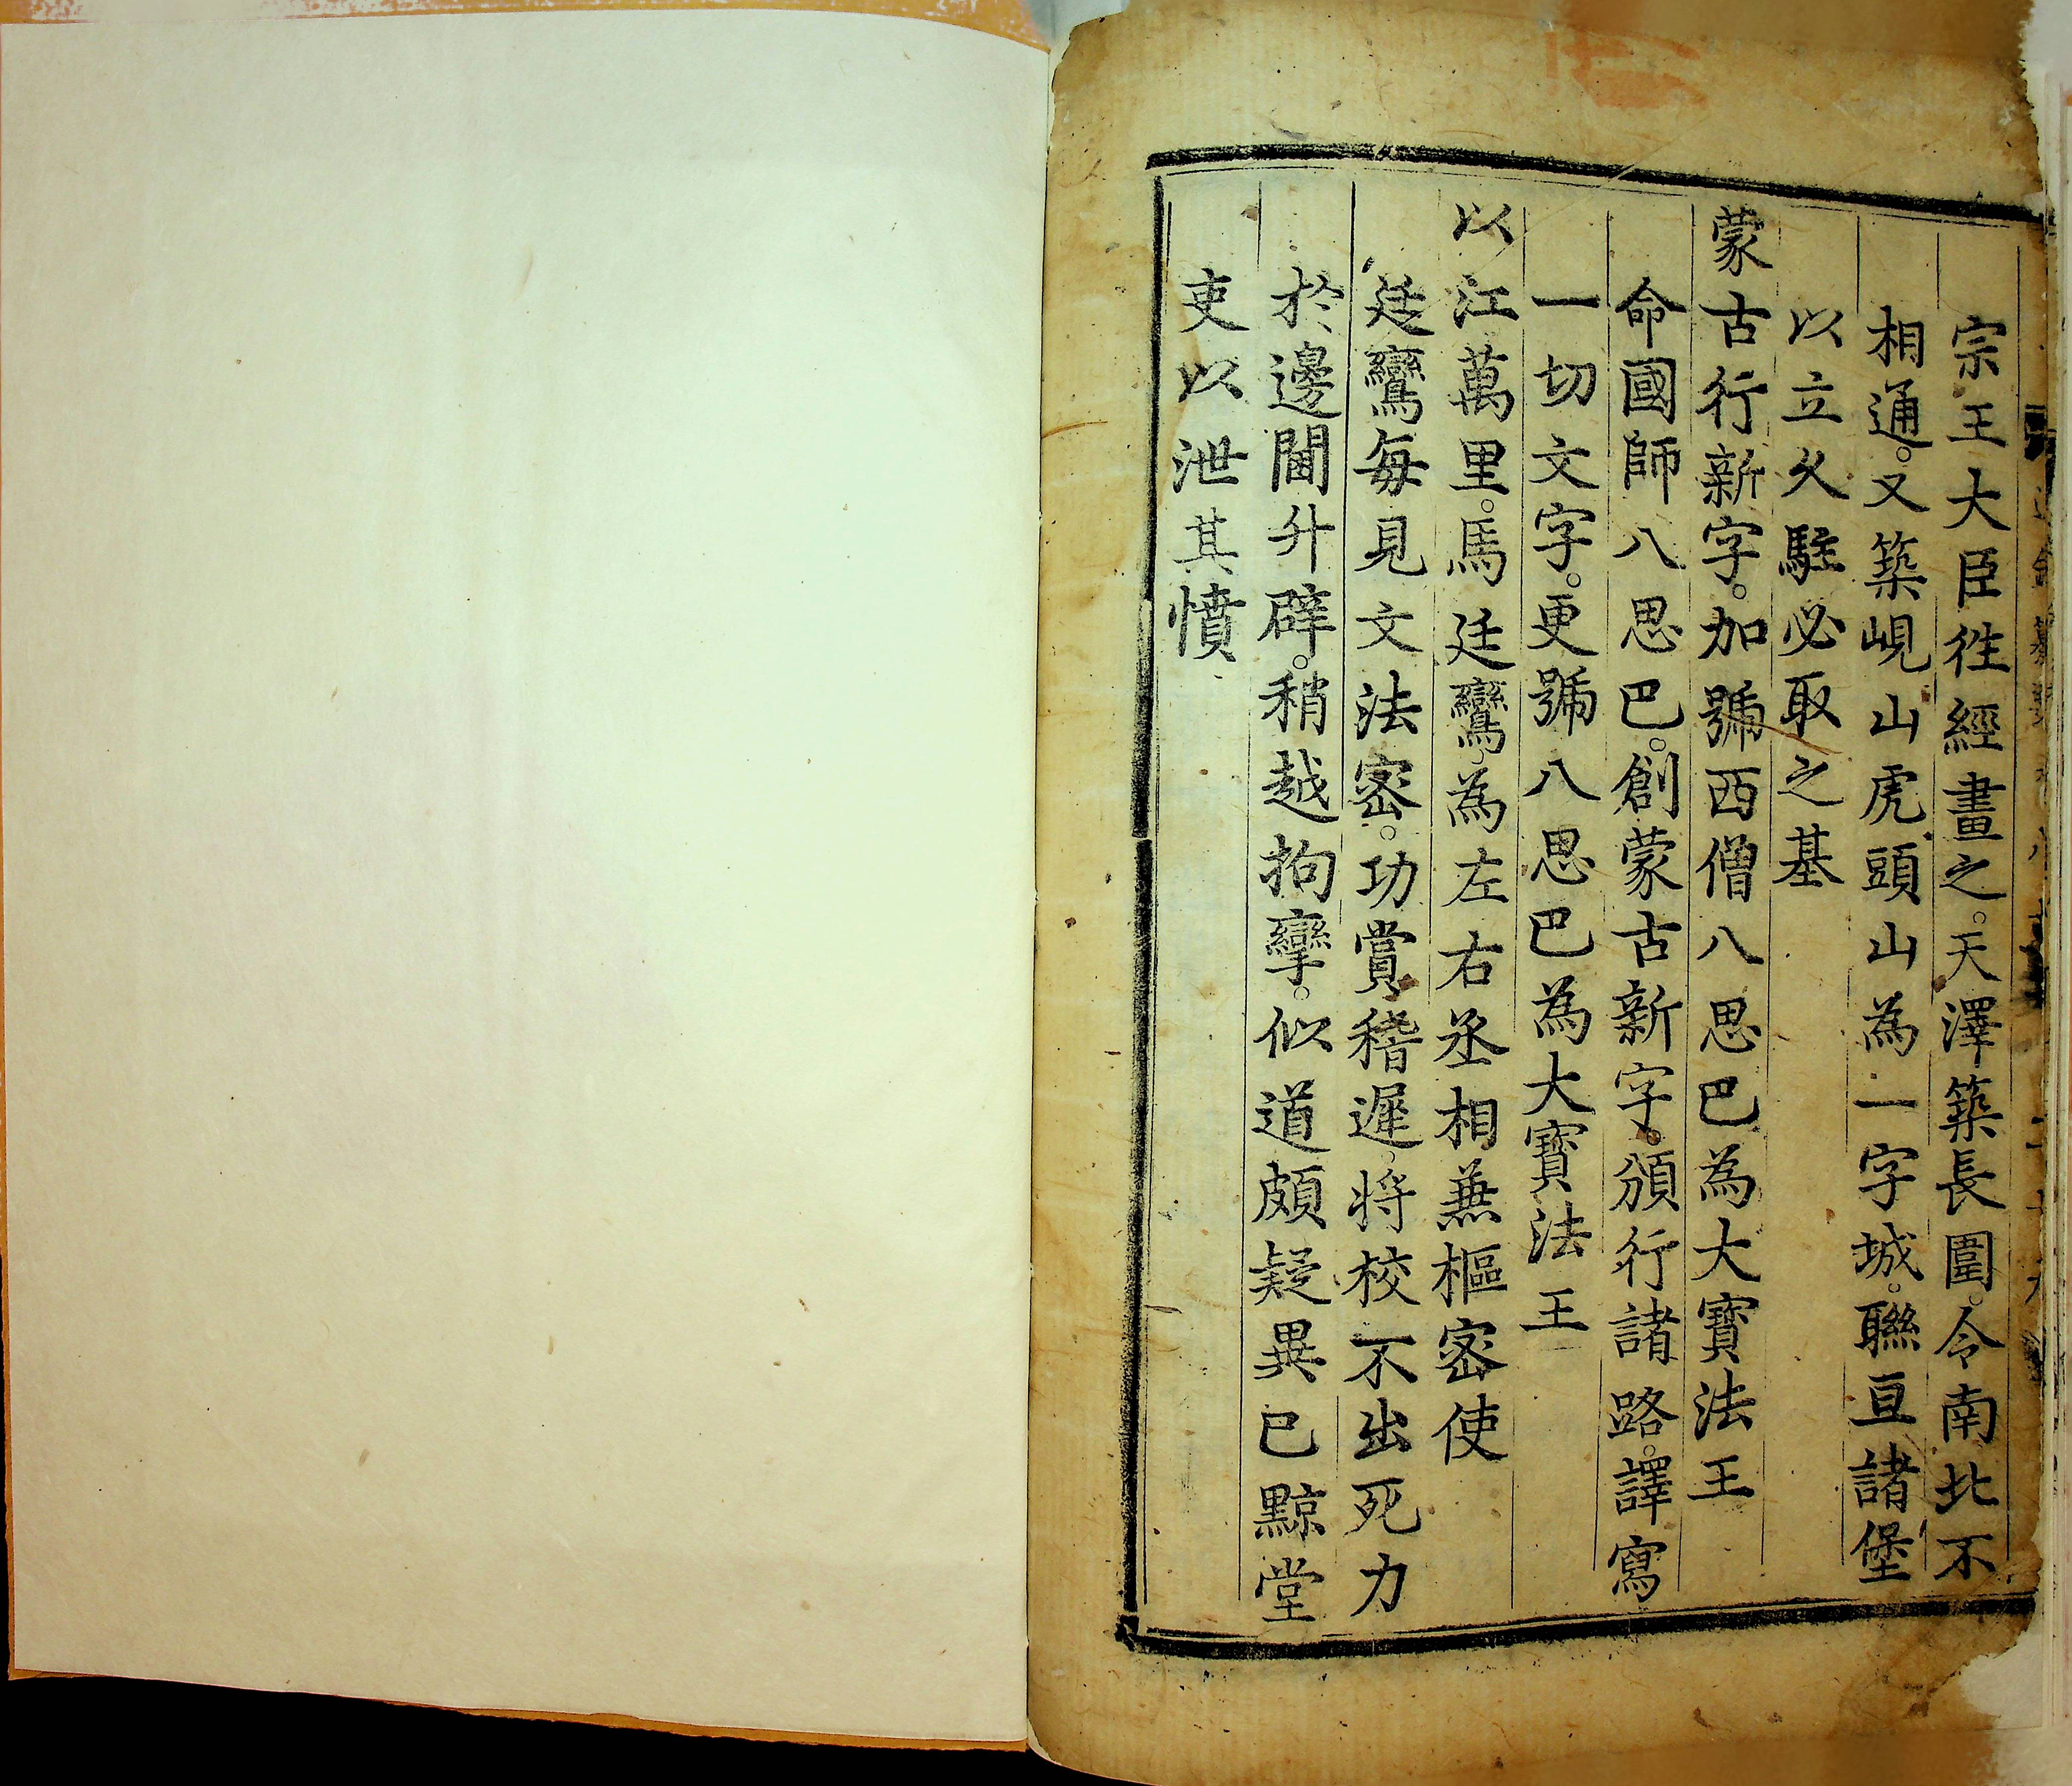 宗王大臣徃經畫之。天澤築長圍。令南北不
相通。又築峴山虎頭山為一字城。聯亘諸堡
以立久駐必取之基
蒙古行新字。加號西僧八思巴為大寶法王
命國師八思巴。創蒙古新字。頒行諸路。譯寫
一切文字。更號八思巴為大寶法王
以江萬里。馬廷鸞為左右丞相兼樞密使
廷鸞每見文法密。功賞稽遲。將校不出死力
於邊閫升辟。稍越拘攣。似道頗疑異已黥堂
吏以泄其憤